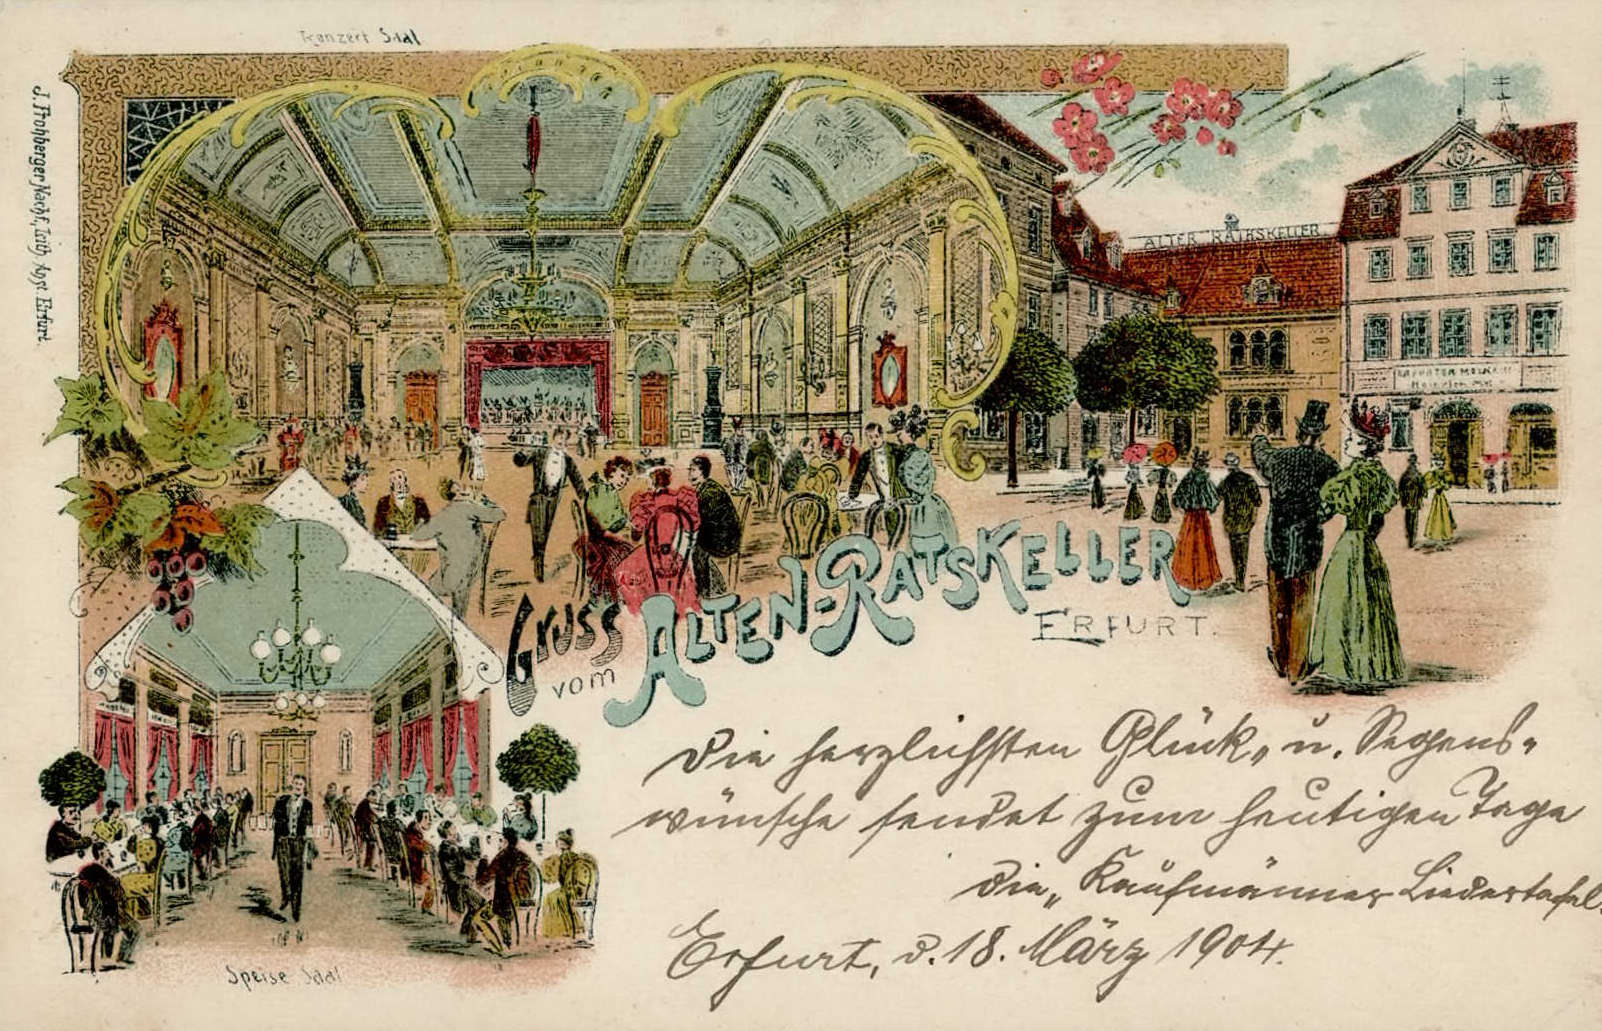 Konzert Saal
J. Frohberger Nachf., Lith. Anst. Erfurt.
ALTER RATHSKELLER
ERFURTER MOLKEREI
GRUSS
vom
ALTEN-RATSKELLER
ERFURT.
Die herzlichsten Glück- u. Segens-
wünsche sendet zum heutigen Tage
die „Kaufmänner Liedertafel.
Erfurt, d. 18. März 1904.
Speise Saal